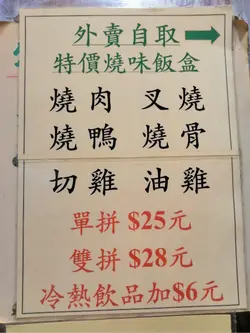 外賣自取
特價燒味飯盒
燒肉 叉燒
燒鴨 燒骨
切雞 油雞
單拼 $25元
雙拼 $28元
冷熱飲品加$6元